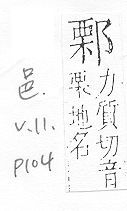 力質切音
栗地名
邑.
v.11.
p104